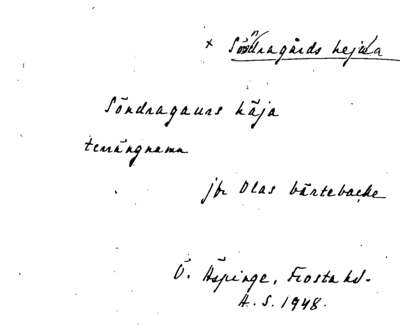 × Söndragårds hejda
Söndragaurs häja
terrängnamn
jfr Olas bärtebacke
Ö. Äspinge, Frosta hd.
A. S. 1948.